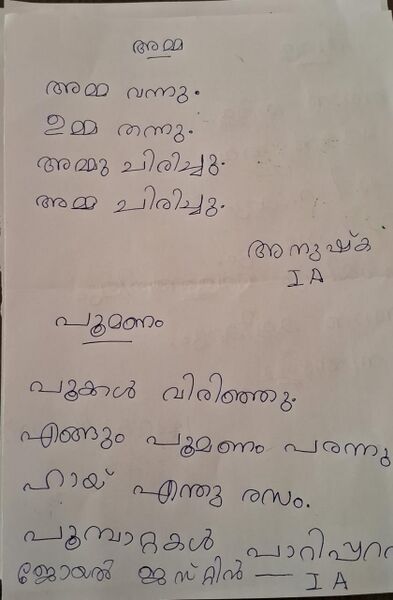 അമ്മ
അമ്മ വന്നു.
ഉമ്മ തന്നു.
അമ്മു ചിരിച്ചു.
അമ്മ ചിരിച്ചു.
അനുഷ്ക
I A
പൂമണം
പൂക്കൾ വിരിഞ്ഞു.
എങ്ങും പൂമണം പരന്നു
ഹായ് എന്തു രസം.
പൂമ്പാറ്റകൾ
ജോയൽ ജസ്റ്റിൻ — I A